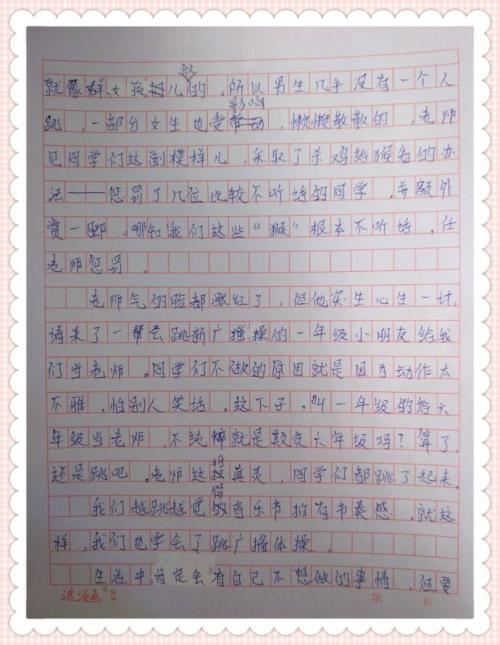 就像群女孩儿似的，所以男生几乎没有一个人
跳，一部分女生也受影响，懒懒散散的，老师
见同学们这副模样儿，采取了杀鸡给猴看的办
法——惩罚了几位比较不听话的同学，并额外
赏一脚。哪知我们这些“猴”根本不听话，任
老师惩罚。
老师气的脸都歌红了，但他突生心生一计，
请来了一帮会跳新广播操的一年级小朋友给我
们当老师。同学们不做的原因就是因为动作太
不雅，怕别人笑话，这下子，叫一年级的给六
年级当老师，不纯粹就是欺负六年级吗？算了，
还是跳吧。老师这招真灵，同学们都跳了起来。
我们越跳越觉的音乐节拍有节奏感，就这
样，我们也学会了跳广播体操。
生活中肯定会有自己不想做的事情，但要
浪漫屋
第 页